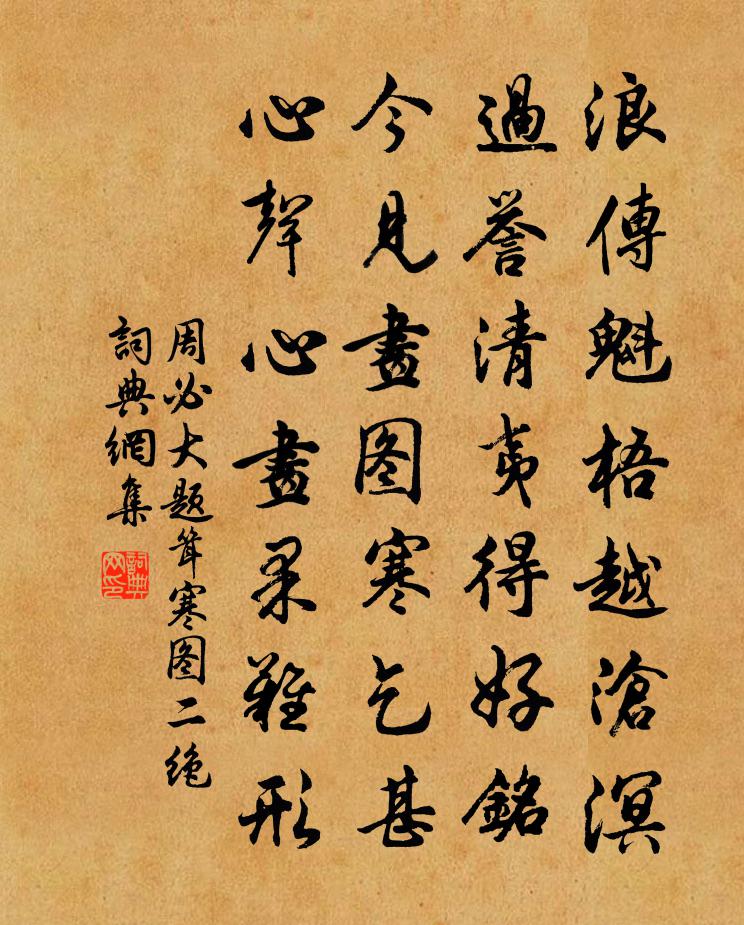 浪傳魁梧越滄溟
過譽清夷得好銘
今見畫图寒乞甚
心聲心畫果難形
周必大题耸寒图二绝
詞典網集
詞典
网印